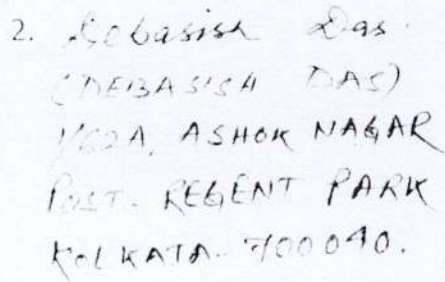 2. Debasish Das.
(DEBASISH DAS)
1/62A, ASHOK NAGAR
POST- REGENT PARK
KOLKATA-700040.